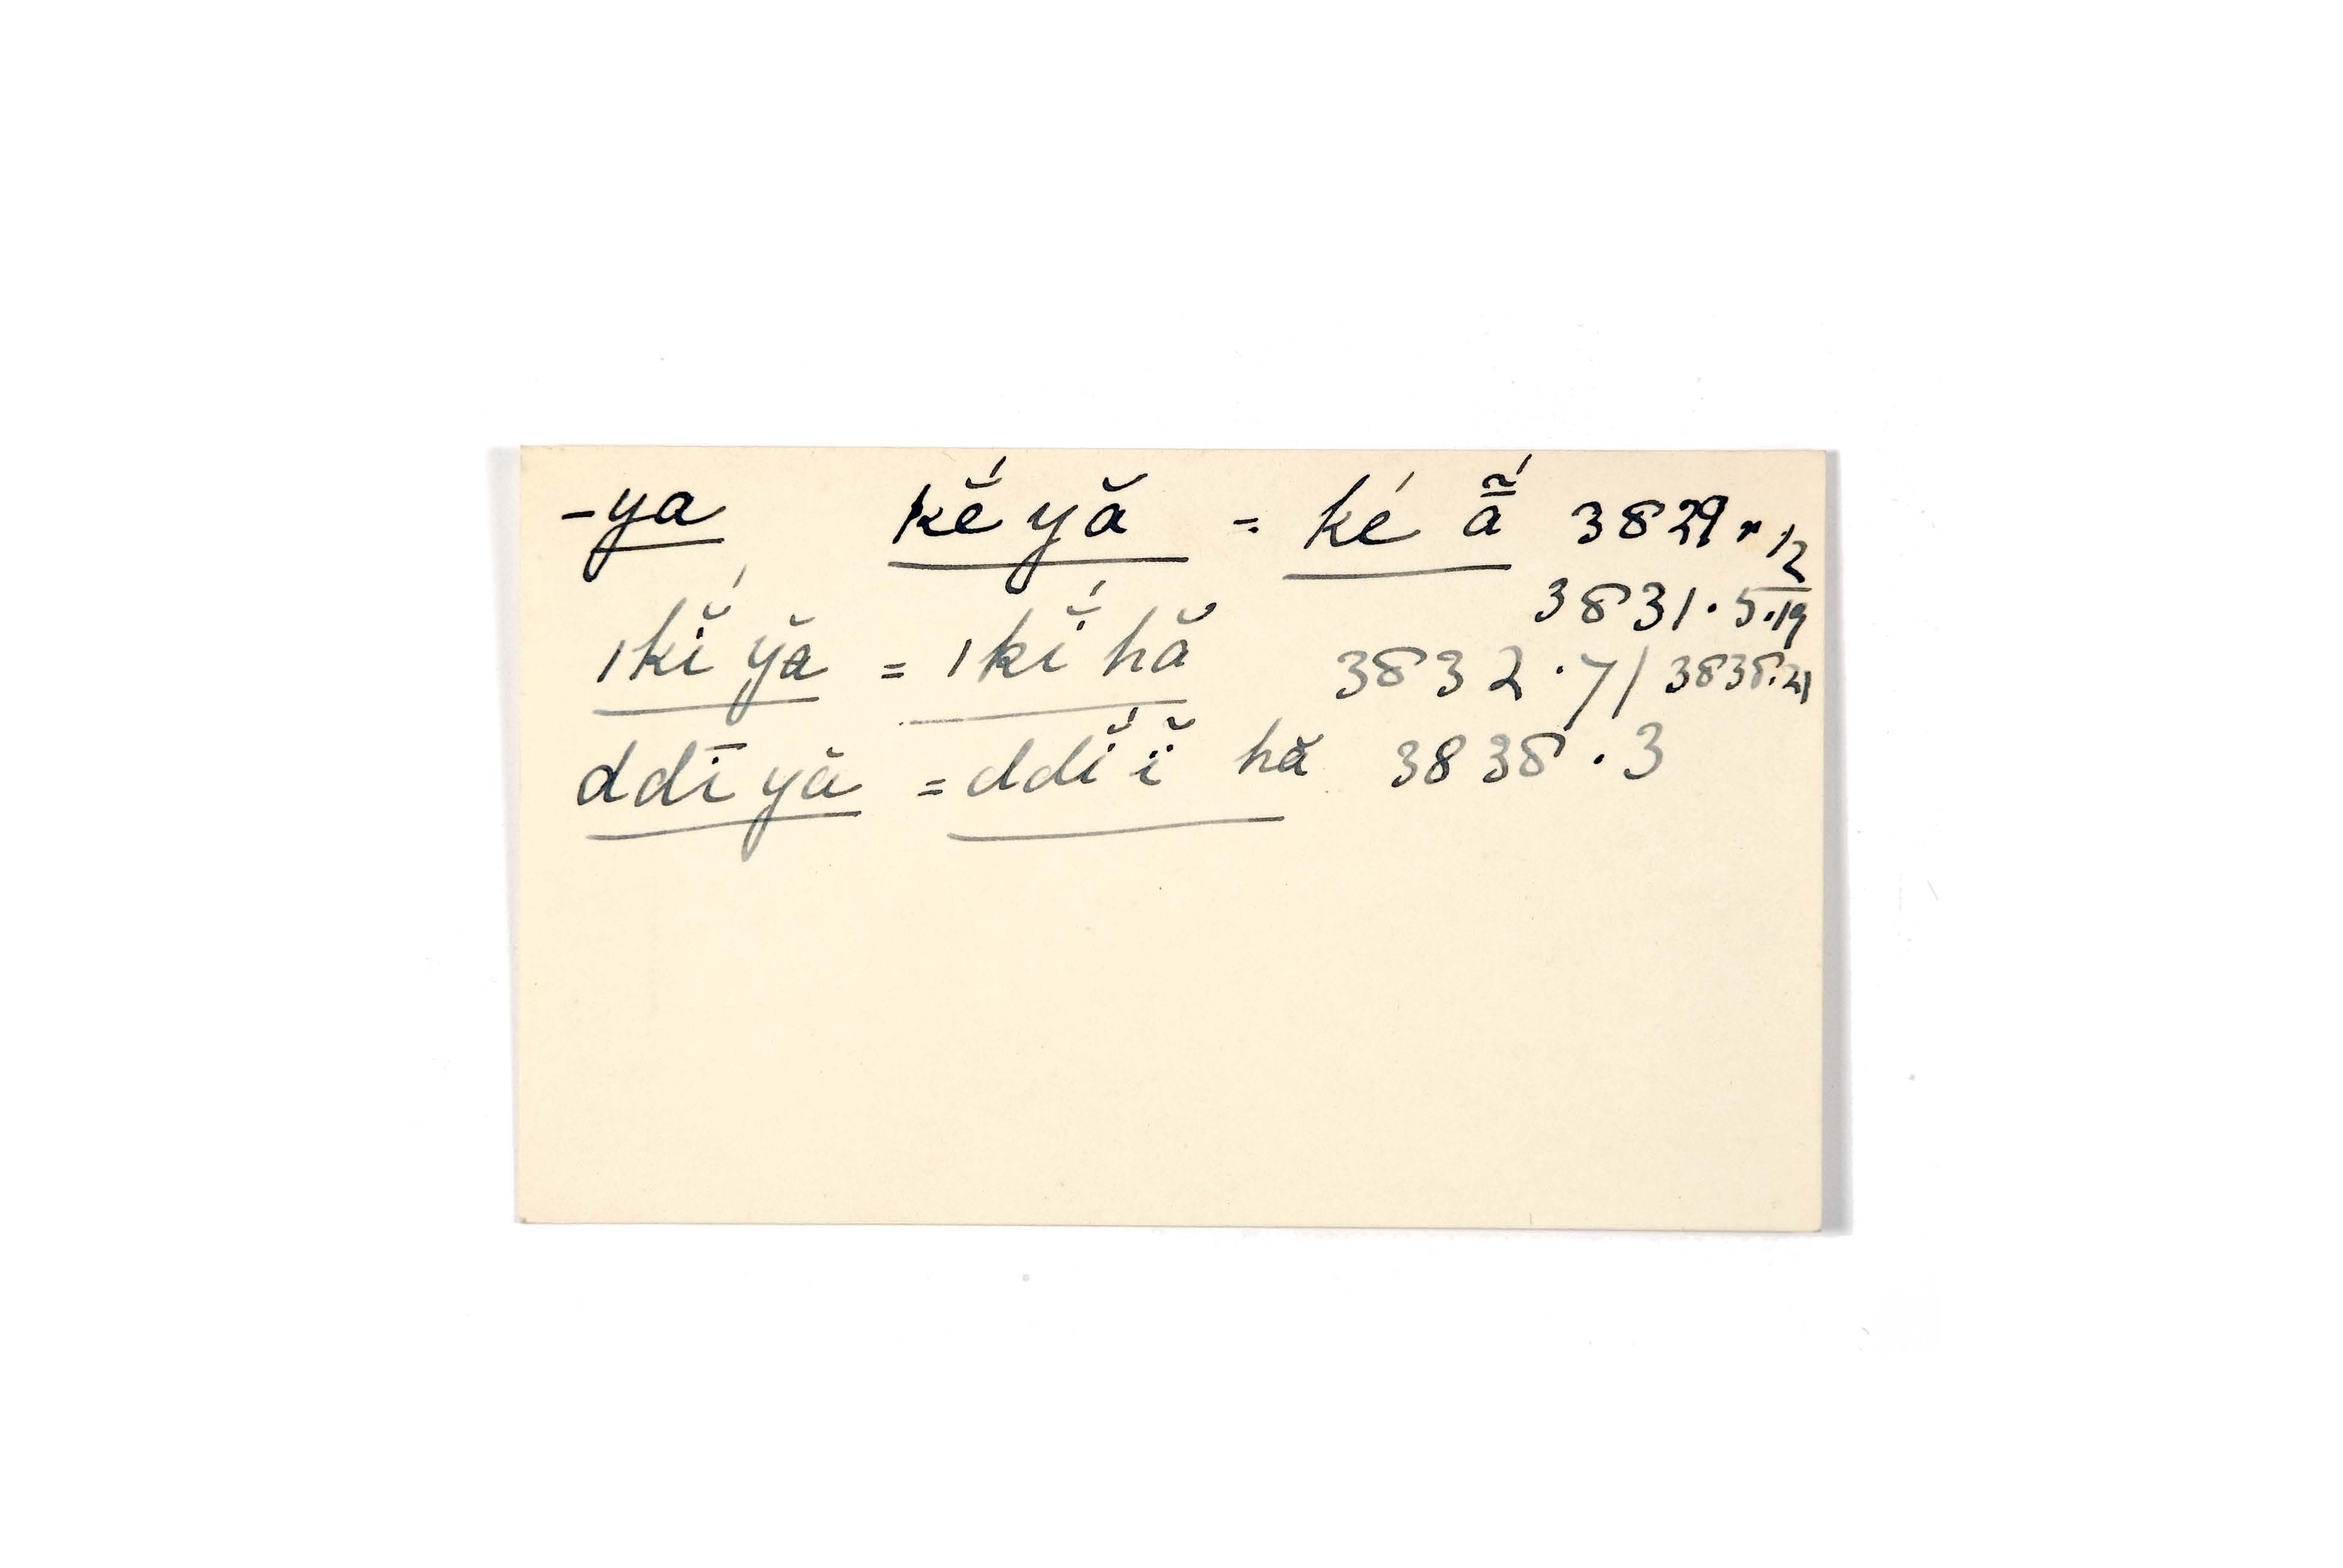 -ya kĕ́ yă = ké ã̄́ 3829.12
3831.5.19
ǀkĭ́ yă = ǀkĭ́ hă 3832.7/3838.21
ddī yă = ddĭ́ ĭ̈ hă 3838.3